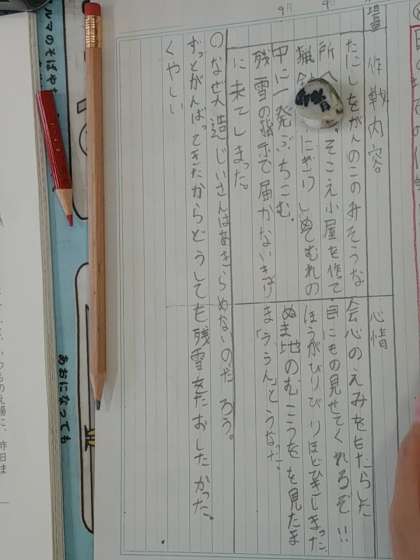 作戦内容
たにしをがんのこのみそうな
所へ
。そこえ小屋を作て、
猟
にぎりしめてむれの
中に一発ぶちこむ。
残雪の指導で届かないきょり
に来てしまった。
心情
会心のえみをもたらした
目にもの見せてくれるぞ!!
ほうがびりびりほどひきしまった
ぬま地のむこうをを見たま
ま「ううん」とうなった。
のなぜ大造じいさんはあきらめないのだろう。
ずっとがんばってきたからどうしても残雪をたおしたかった。
くやしい
あおになっても